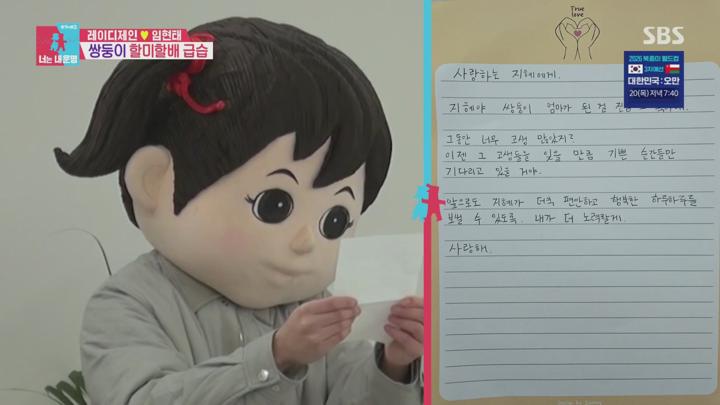 레이디제인♥임현태
쌍둥이 할미할배 급습
너는 내 운명
SBS
2026 북중미 월드컵
3차예선
대한민국:오만
20(목) 저녁 7:40
True
love
사랑하는 지혜에게.
지혜야 쌍둥이 엄마가 된 걸
그동안 너무 고생 많았지?
이젠 그 고생들을 잊을 만큼 기쁜 순간들만
기다리고 있을 거야.
앞으로도 지혜가 더욱 편안하고 행복한 하루하루를
보낼 수 있도록. 내가 더 노력할게.
사랑해.